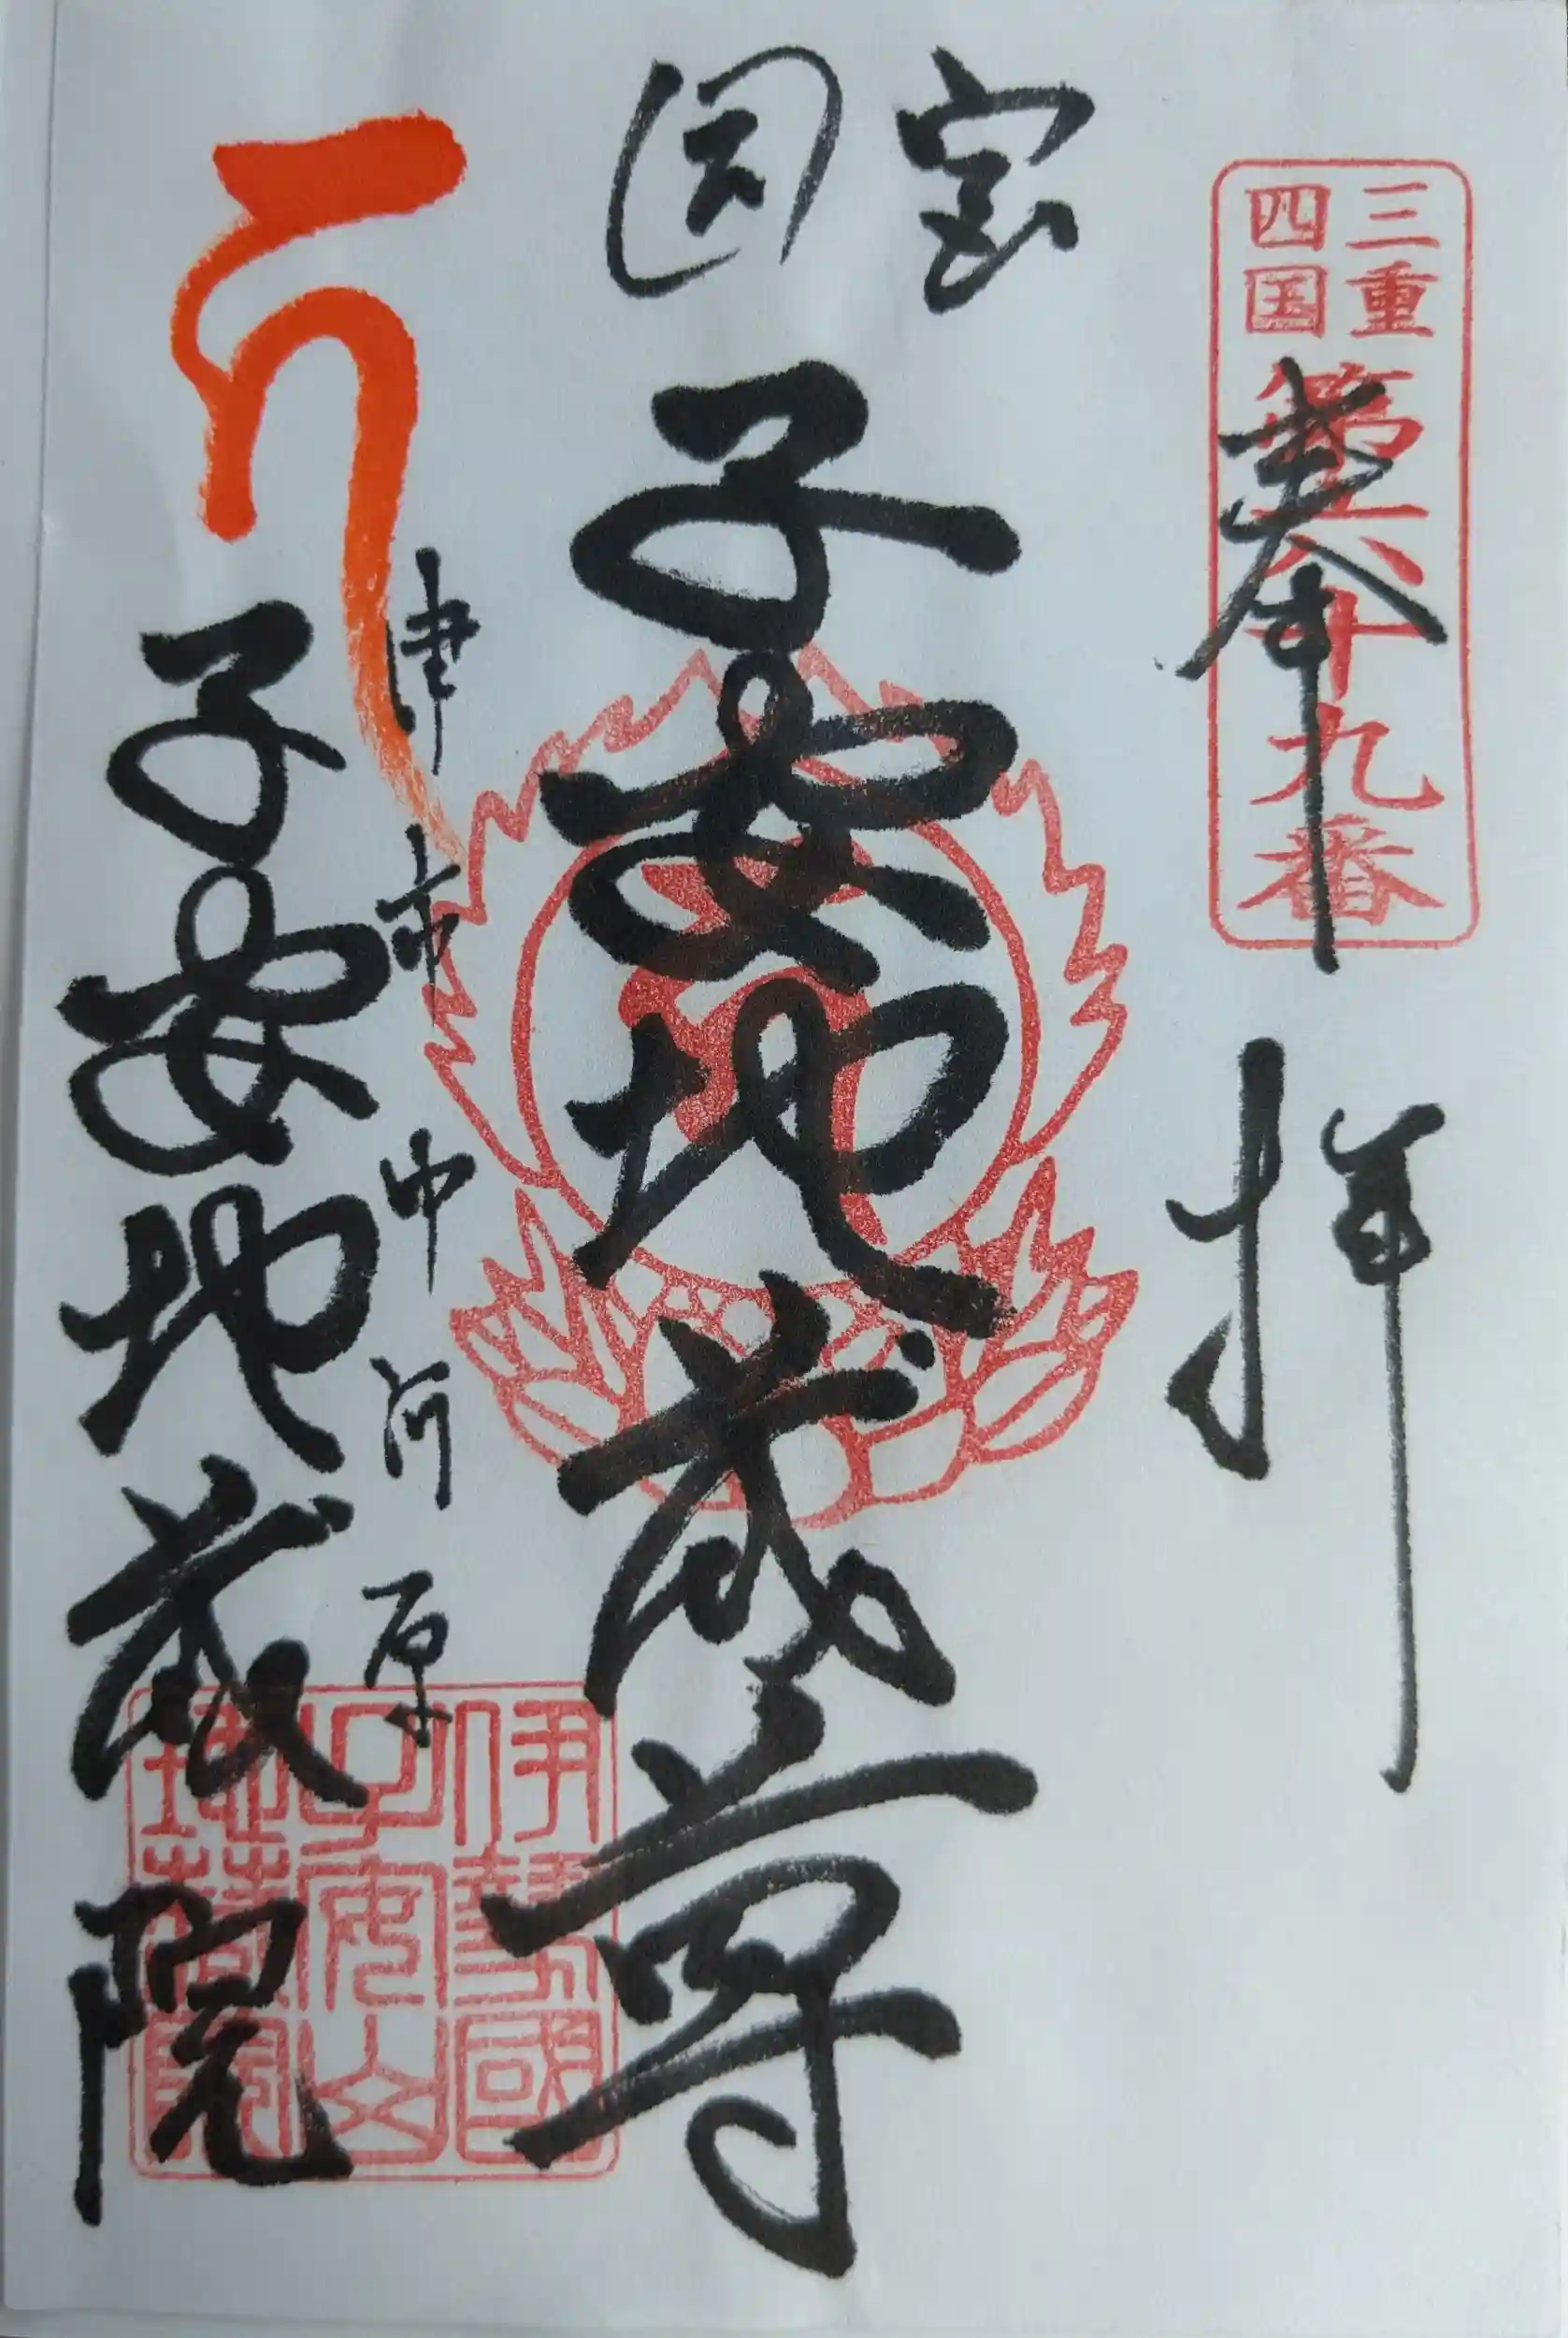 三重
四国
第六十九番
奉拝
宝
国
子安地蔵尊
津市中河原
子安地蔵院
伊勢國
子安山
地蔵院